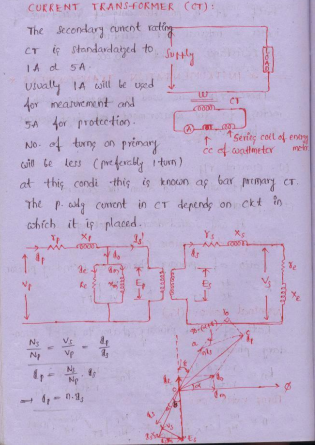 CURRENT TRANSFORMER (CT):
The secondary current rating
CT is standardaized to
1A or 5A.
Usually 1A will be used
for measurement and
5A for protection.
No. of turns on primary
will be less (preferably 1 turn)
at this condi this is known as bar primary CT.
The p-wdg current in CT depends on ckt in
which it is placed.
Supply
LOAD
CT
A
Series coil of energy
meter
CC of wattmeter
rp Xp rs Xs
Vp Ep Es Vs
Ns/Np = Vs/Vp = Ip/Is
Ip = Ns/Np Is
⇒ Ip = n.Is